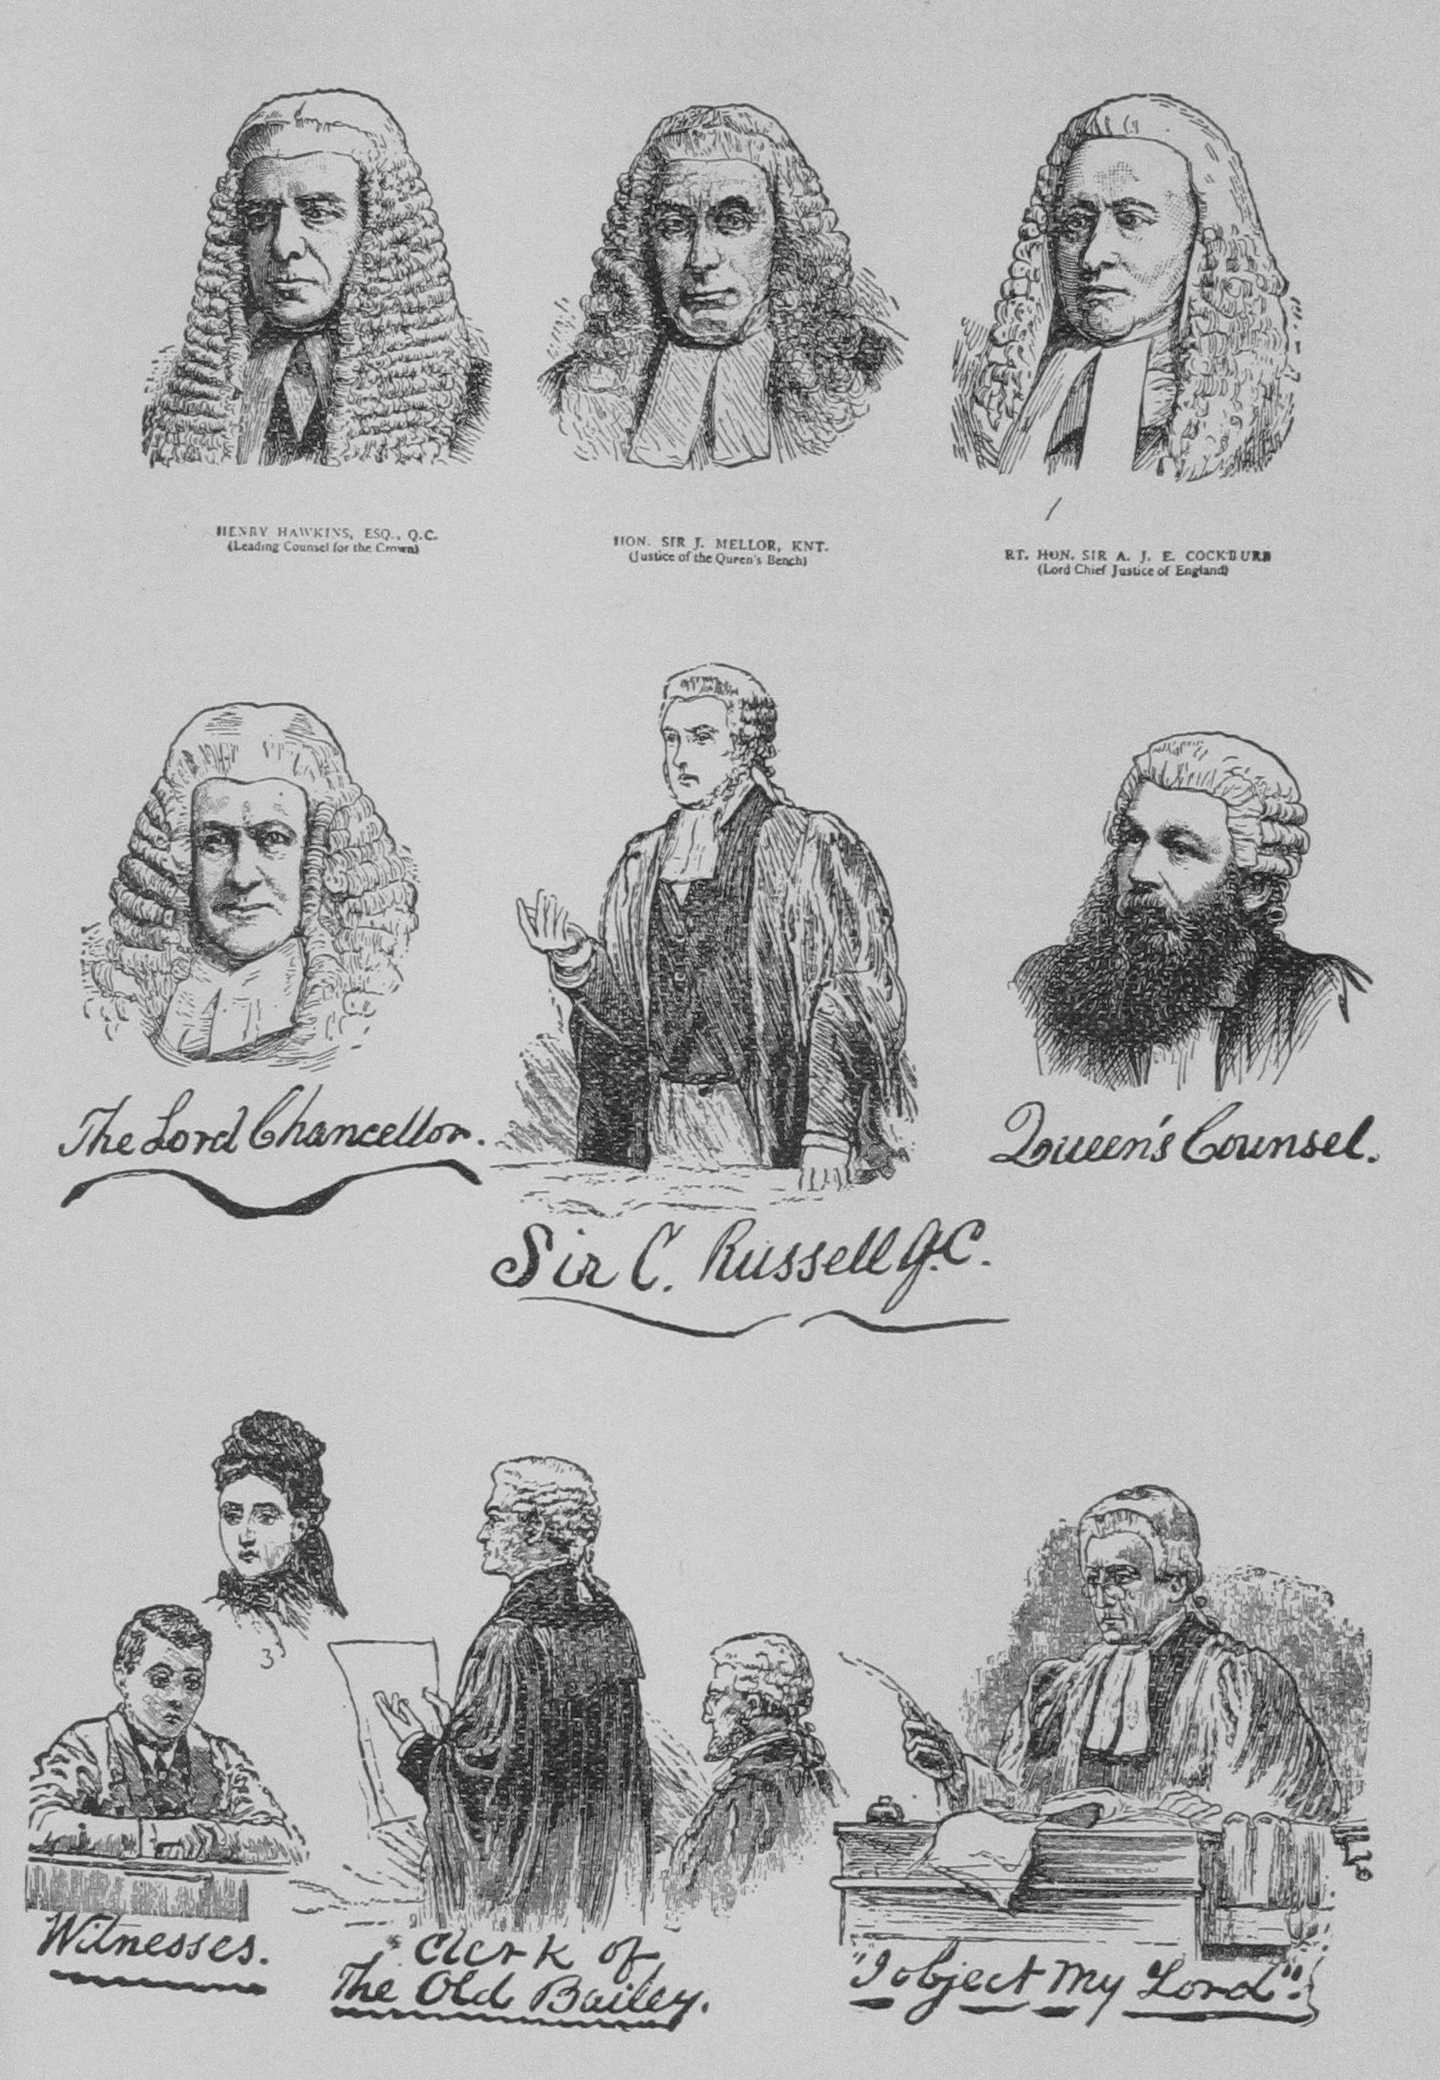 HENRY HAWKINS, ESQ., Q.C.
(Leading Counsel for the Crown)
HON. SIR J. MELLOR, KNT.
(Justice of the Queen's Bench)
RT. HON. SIR A. J. E. COCKBURN
(Lord Chief Justice of England)
The Lord Chancellor.
Queen's Counsel.
Sir C. Russell Q.C.
3
Witnesses.
Clerk of
The Old Bailey.
"I object My Lord".